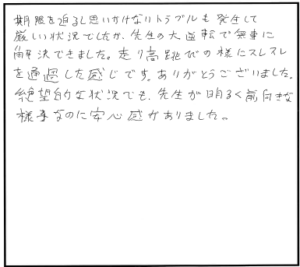 期限を迫るし思いかけないトラブルも発生して
厳しい状況でしたが、先生の大逆転で無事に
解決できました。走り高跳びの様にスレスレ
を通過した感じです。ありがとうございました。
絶望的な状況でも、先生が明るく前向きな
様子なのに安心感がありました。